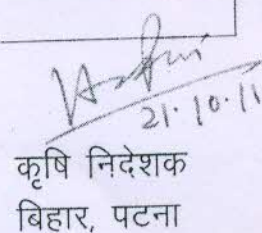 21.10.11
कृषि निदेशक
बिहार, पटना